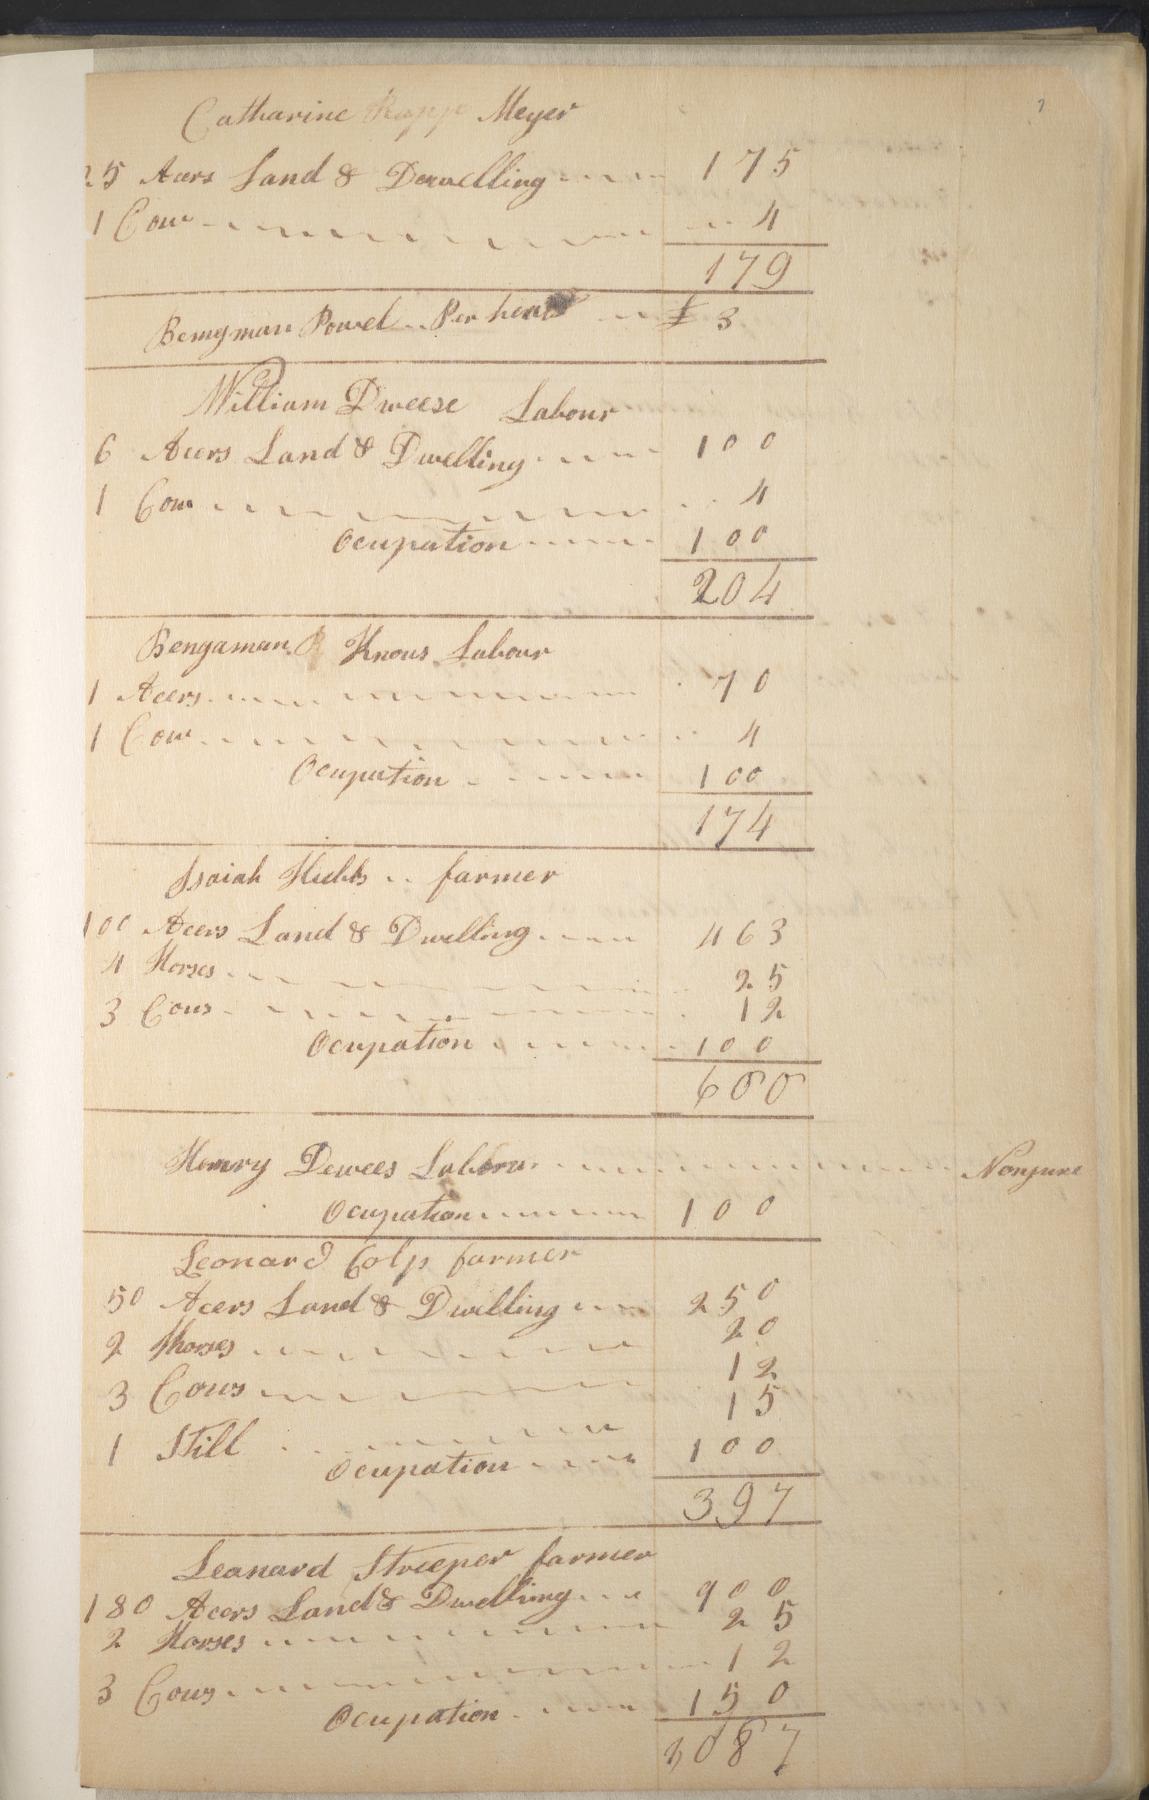 Catharine Rapp Meyer
25 Acers Land & Dowelling 175
1 Cow 4
179
Bemgman Powel Per head £ 3
William Dweese Labour
6 Acers Land & Dwelling 100
1 Cow 4
Ocupation 100
204
Bengaman R Knous Labour
1 Acers 70
1 Cow 4
Ocupation 100
174
Isaiah Hubbs farmer
100 Acers Land & Dwelling 463
4 Horses 25
3 Cous 12
Ocupation 100
600
Henry Dewees Labour Nonjure
Ocupation 100
Leonard Colp farmer
50 Acers Land & Dwilling 250
2 Horses 20
3 Cows 12
1 Still 15
Ocupation 100
397
Leanard Streeper farmer
180 Acers Land & Dwelling 900
2 Horses 25
3 Cows 12
Ocupation 150
1087